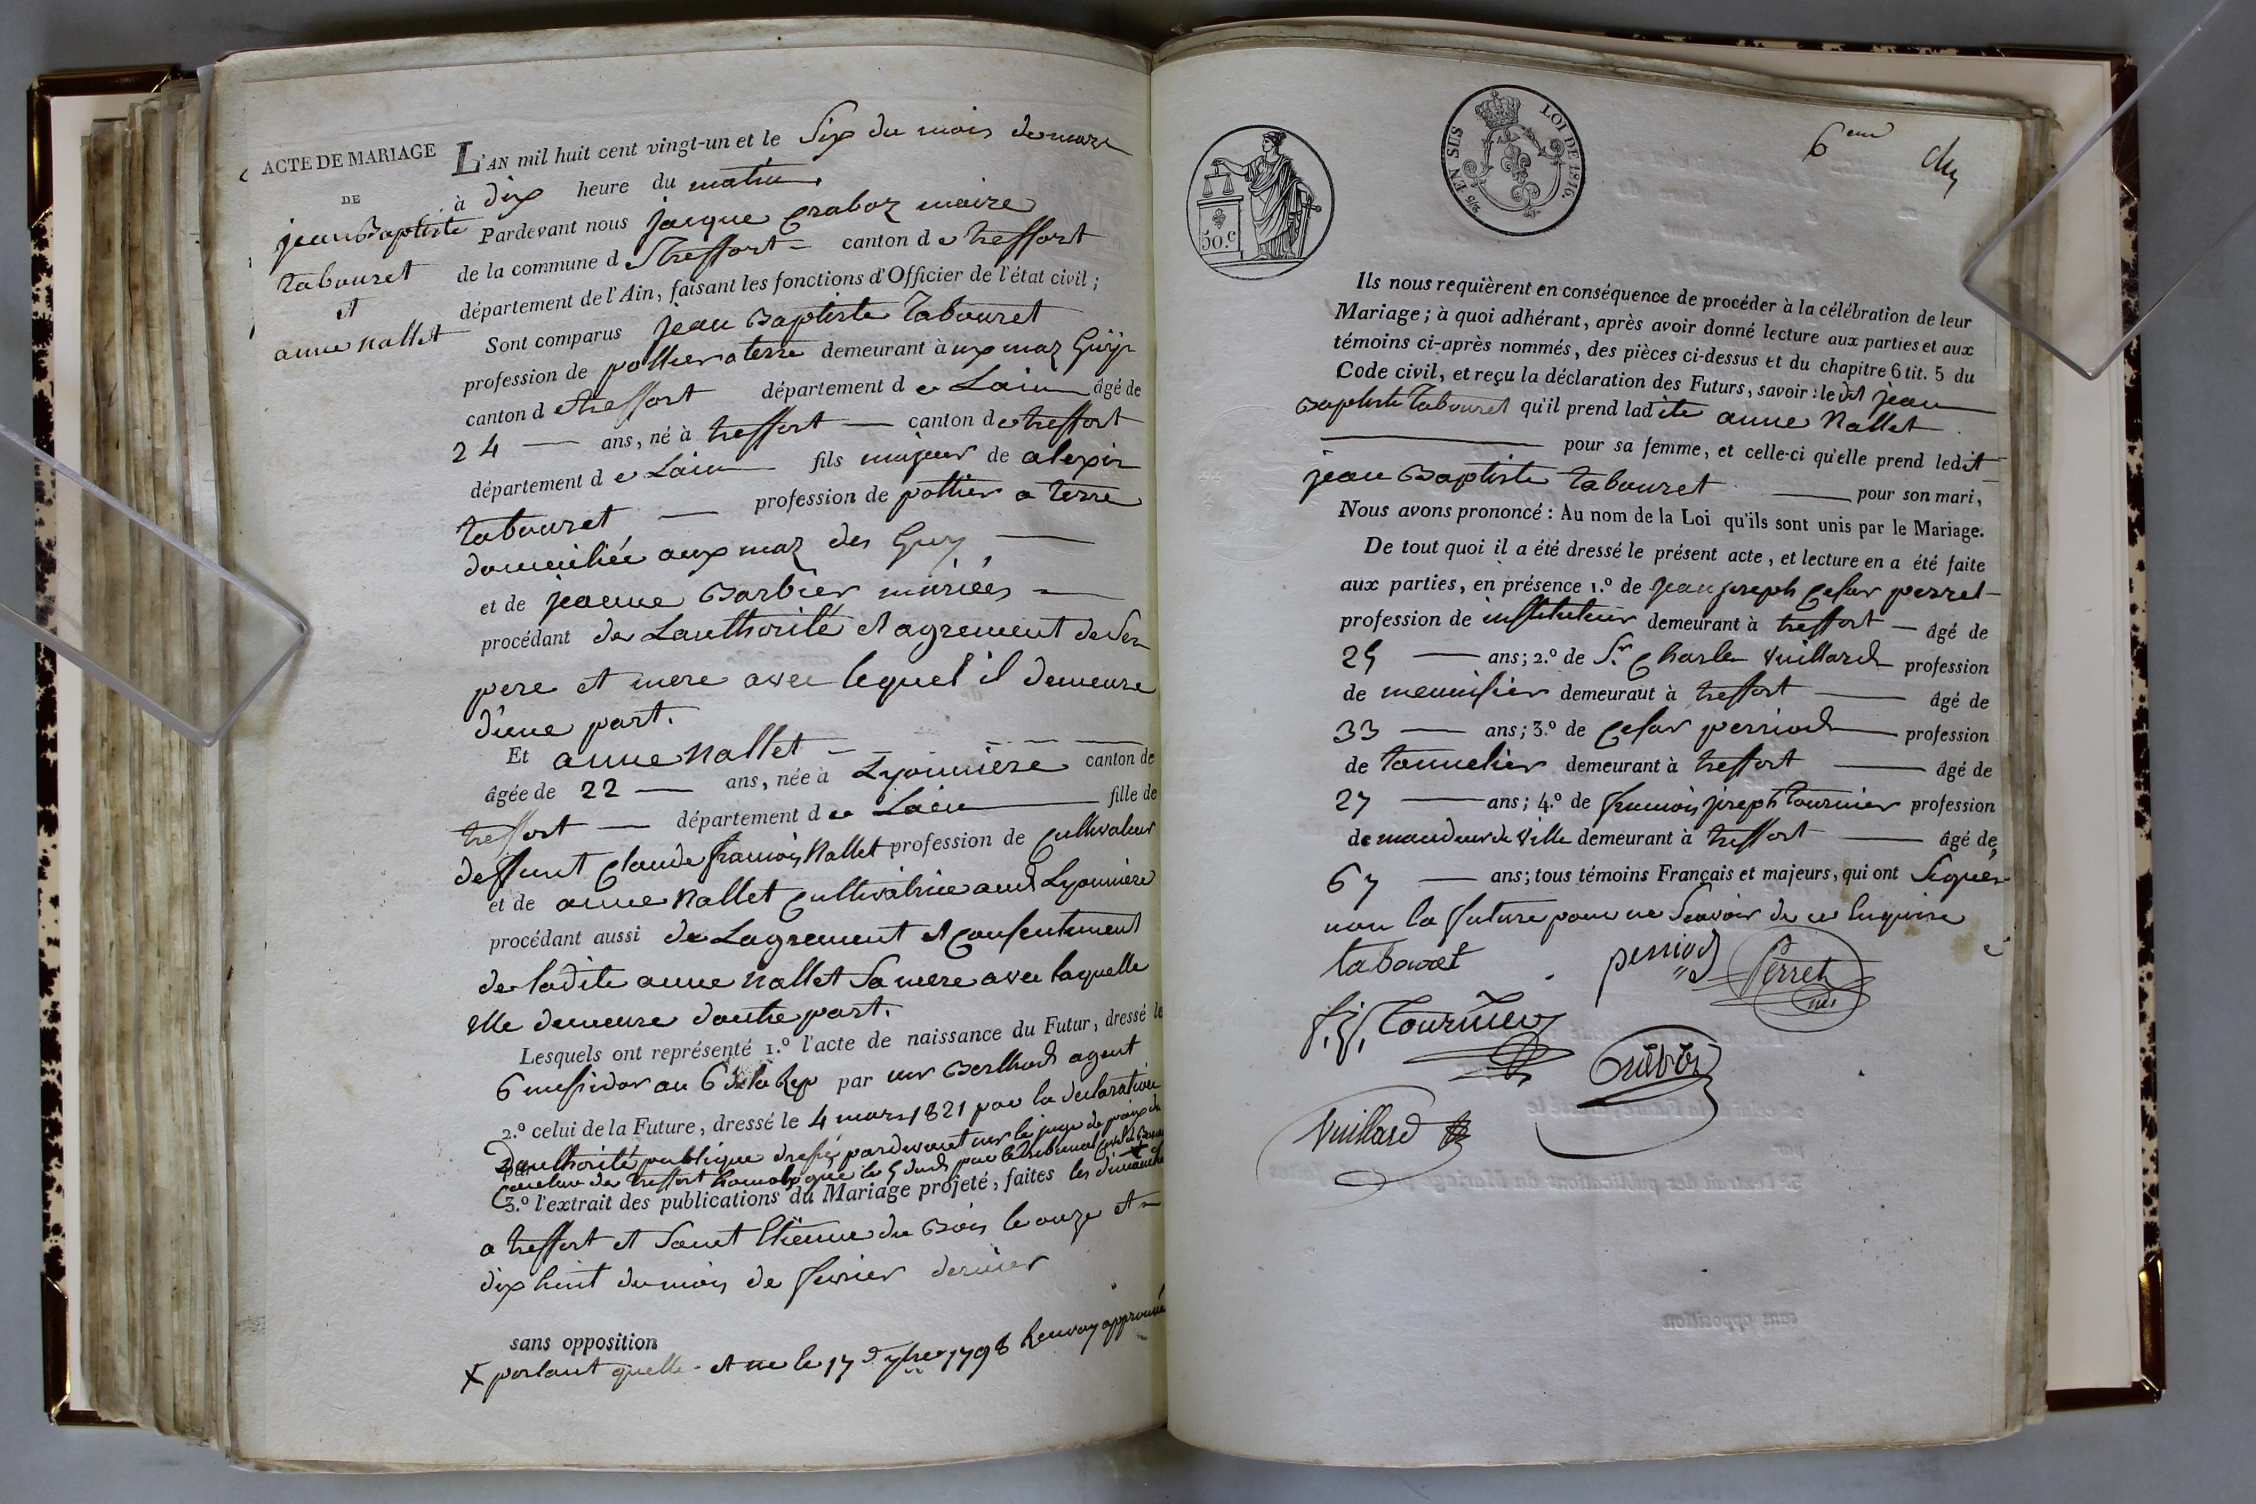 ACTE DE MARIAGE
DE
jean Baptiste
tabouret
et
anne nallet
L'AN mil huit cent vingt-un et le Six du mois de mars
à dix heure du matin
Pardevant nous jacque maire
de la commune de treffort canton de treffort
département de l'Ain, faisant les fonctions d'Officier de l'état civil ;
Sont comparus jean Baptiste tabouret
profession de pottier a terre demeurant à ux maz Guÿ
canton de treffort département de Lain âgé de
24 ans, né à treffort canton de treffort
département de Lain fils majeur de alexis
tabouret profession de pottier a terre
domiciliée aux maz des Guy
et de jeanne Barbier mariées
procédant de Lauthorité et agrement de Ses
pere et mere avec lequel il demeure
d'une part.
Et anne nallet
âgée de 22 ans, née à Lyonniere canton de
treffort département de Lain fille de
deffunt Claude francois Nallet profession de Cultivateur
et de anne Nallet Cultivatrice aud Lyonniere
procédant aussi de Lagrement et Consentement
de ladite anne nallet Sa mere avec laquelle
elle demeure dautre part.
Lesquels ont représenté 1.º l'acte de naissance du Futur, dressé le
6 messidor an 6 de la Rep par mr agent
2.º celui de la Future, dressé le 4 mars 1821 par la declaration
Dauthorité publique dressée pardevant mr le juge de paix du
Canton de treffort homologuée le 5 dudt par le tribunal
3.º l'extrait des publications du Mariage projeté, faites les dimanche
a treffort et Saint Etienne du Bois le onze et
dix huit du mois de fevrier dernier
sans opposition
x portant quelle et ne le 17 7bre 1798 Renvoy approuvé
EN SUS
LOI DE 1816.
50.c
6eme
Ils nous requièrent en conséquence de procéder à la célébration de leur
Mariage ; à quoi adhérant, après avoir donné lecture aux parties et aux
témoins ci-après nommés, des pièces ci-dessus et du chapitre 6 tit. 5 du
Code civil, et reçu la déclaration des Futurs, savoir : le dit jean
Baptiste tabouret qu'il prend ladite anne Nallet
pour sa femme, et celle-ci qu'elle prend ledit
jean Baptiste tabouret pour son mari,
Nous avons prononcé : Au nom de la Loi qu'ils sont unis par le Mariage.
De tout quoi il a été dressé le présent acte, et lecture en a été faite
aux parties, en présence 1.º de jean joseph Cesar perret
profession de instituteur demeurant à treffort âgé de
25 ans ; 2.º de Sr Charle Vuillard profession
de menuisier demeurant à treffort âgé de
33 ans ; 3.º de Cesar perriod profession
de tonnelier demeurant à treffort âgé de
27 ans ; 4.º de francois joseph tournier profession
de mandeur de Ville demeurant à treffort âgé de
67 ans ; tous témoins Français et majeurs, qui ont Signés
non la future pour ne Scavoir de ce Enquise
tabouret
perriod
Perret
f. j. Tournier
Vuillard